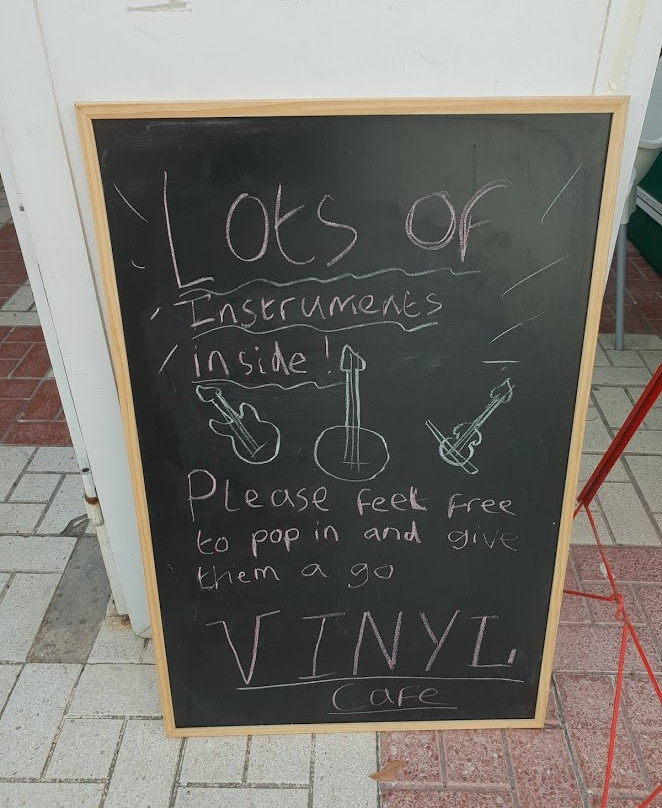 Lots of
Instruments
inside!
Please feel free
to pop in and give
them a go
VINYL
Cafe